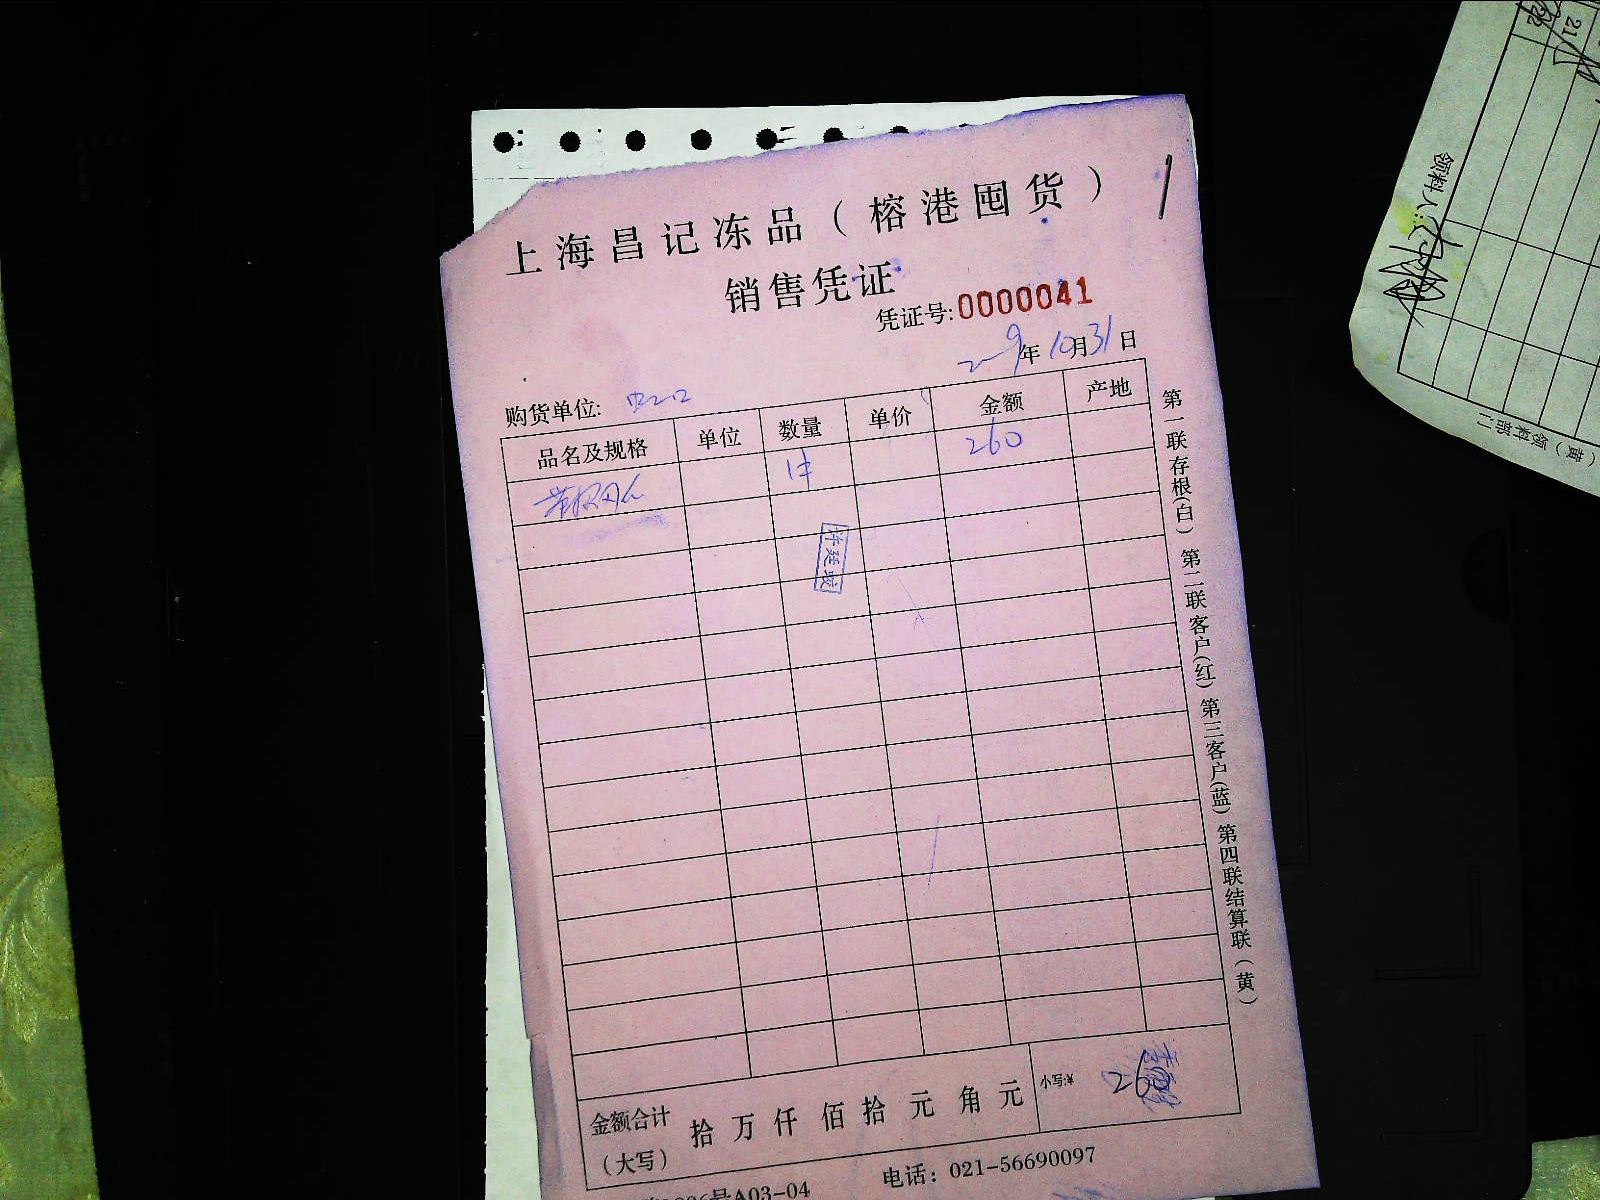 上海昌记冻品（榕港囤货）
销售凭证
凭证号:0000041
年10月31日
购货单位:
品名及规格 单位 数量 单价 金额 产地
1件 260
许廷
第一联存根(白) 第二联客户(红) 第三客户(蓝) 第四联结算联(黄)
金额合计
(大写) 拾万仟佰拾元角元 小写:¥ 260
号A03-04 电话：021-56690097
21
22
领料人:
(黄)
领料部门